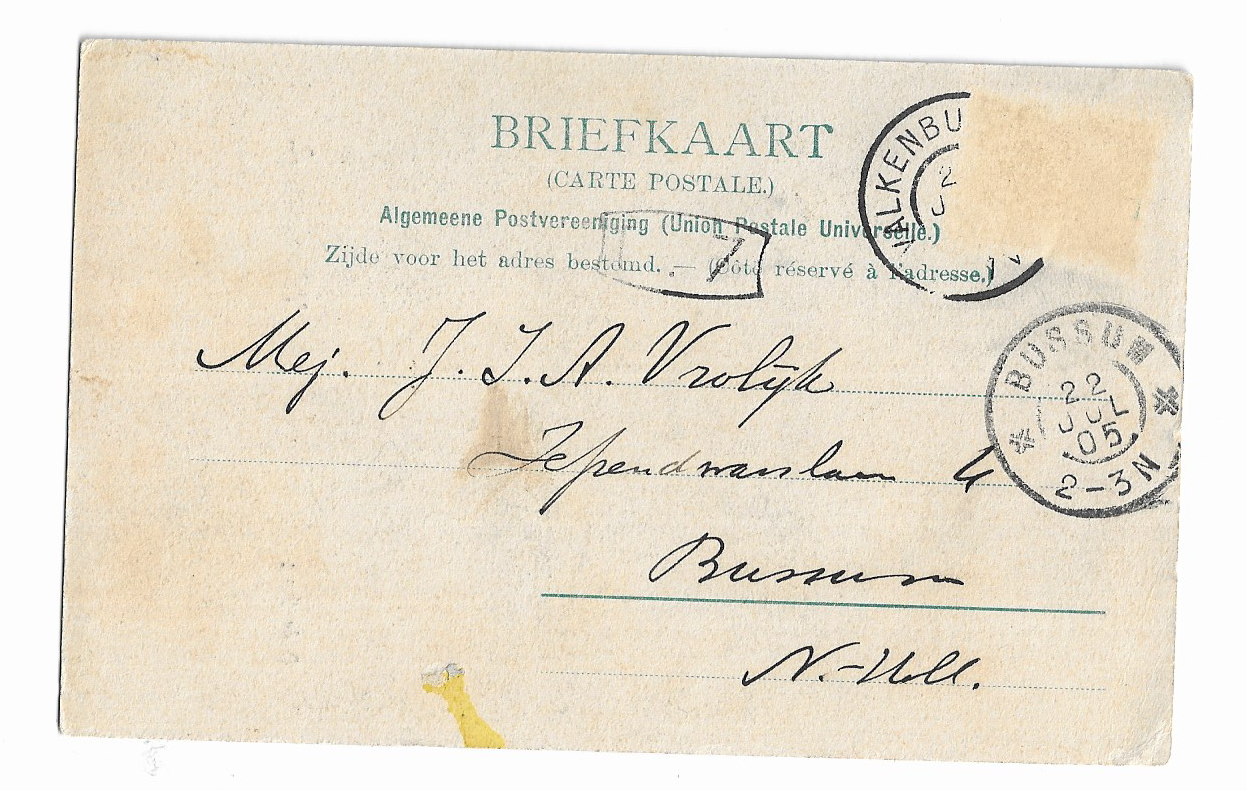 BRIEFKAART
(CARTE POSTALE.)
Algemeene Postvereeniging (Union Postale Universelle.)
Zijde voor het adres bestemd. — (Côté réservé à l'adresse.)
VALKENBU
2
J
7
Mej. J. J. A. Vrolijk
4
Bussum
N.-Holl.
BUSSUM
22
JUL
05
2-3N